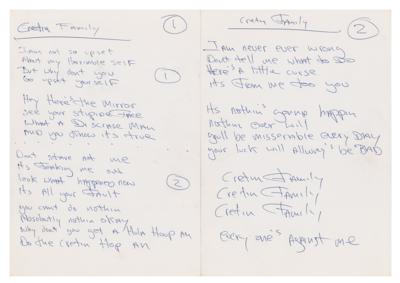 Cretin Family
1
I am not so upset
About my Horrable self
But why don't you
Go upset yourself
1
Hey There's the Mirror
see your stupid face
What a Disgrase Man
AND you know it's true
Don't stare at me
its making me sick
look what happened now
its All your Fault
you can't do nothin
Absolutly nothin okay
Why don't you get A Hula Hoop
Do the Cretin Hop
2
Cretin Family
2
I am never ever wrong
Don't tell me what to Do
Here's A little curse
its From me too you
Its nothin's gonna happen
Nothin ever will
you'll be misserable every DAY
your luck will allway's be BAD
Cretin Family
Cretin Family
Cretin Family
every one's Against me